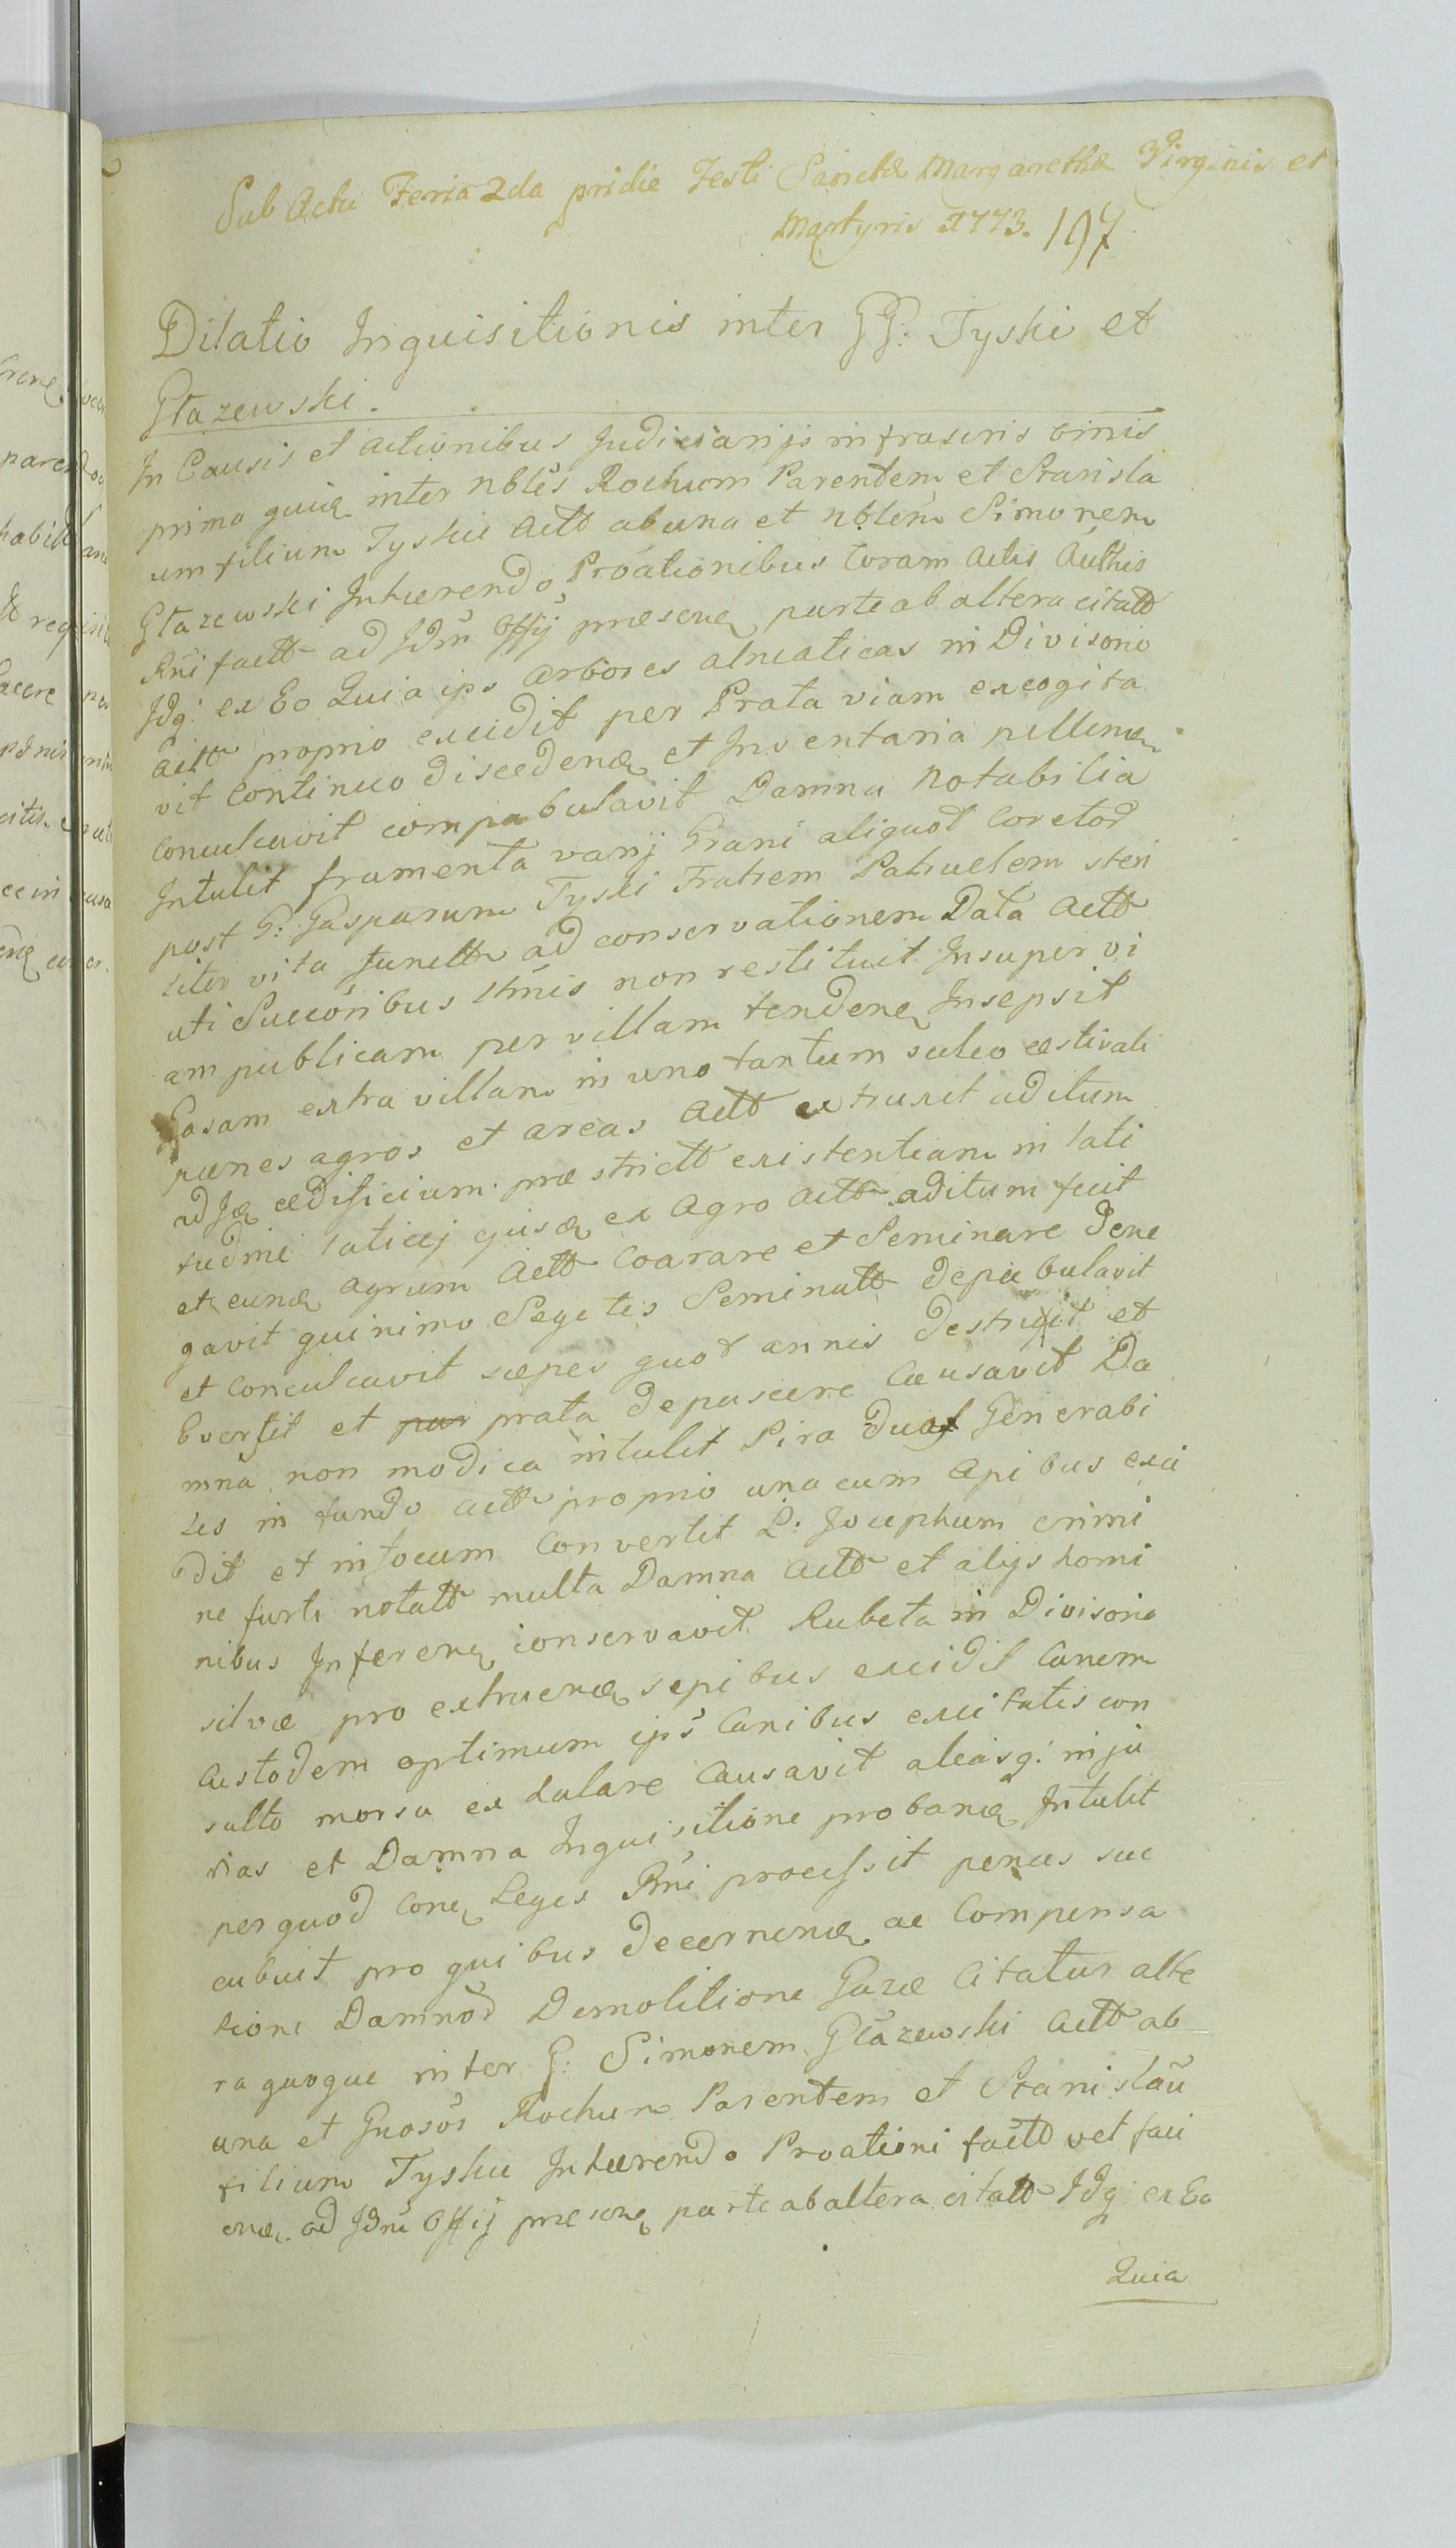 Sub Actu Feria 2da pridie Festi Sanctæ Margarethæ Virginis et
Martyris 1773. 197
Dilatio Inquisitionis inter GG: Tyski et
Głazewski.
In Causis et actionibus Judiciarijs infrascris binis
prima quidē inter Nbles Rochum Parentem et Stanisla
um filium Tyskie Actt ab una et Nblem Simonem
Głazewski Inhærendo Proationibus Coram Actis Authis
Rni factt ad Jdm Offij præsenē parte ab altera citatt
Jdq: ex Eo Quia ips Arbores alneaticas in Divisorio
Actt proprio excidit per Prata viam excogita
vit Continuo discedendē et Inventaria pellendē
Conculcavit compabulavit Damna Notabilia
Intulit frumenta varij Grani aliquot Coretor
post G: Gasparum Tyski Fratrem Patruelem steri
liter vita functt ad conservationem Data Actt
uti Succoribus ltmis non restituit Insuper vi
am publicam per villam tendenē Insepsit
Casam extra villam in uno tantum sulco æstivali
pænes agros et areas Actt extruxit aditum
ad Jd ædificium præstrictt existentiam in lati
tudine laticij ejusdē ex Agro Actt aditum fecit
et eundē agrum Actt Coarare et Seminare Dene
gavit quinimo Segetes Seminatt depabulavit
et Conculcavit sæpes quot annis destruxit et
Eversit et prata depascere Causavit Da
mna non modica intulit Pira duas Generabi
les in fundo Actt proprio una cum Apibus exci
dit et in focum Convertit L: Josephum crimi
ne furti notatt multa Damna Actt et alijs homi
nibus Inferenē conservavit Rubeta in Divisorio
silvæ pro extruendē sepibus excidit Canem
Custodem optimum ips Canibus excitatis con
sulto morsu exhalare Causavit aleasq: inju
rias et Damna Inquisitione probandē Intulit
per quod Conē Leges Rni processit penas suc
cubuit pro quibus decernendē ac Compensa
tione Damnor Demolitione Gazæ Citatur alte
ra quoque inter G: Simonem Głazewski Actt ab
una et Gnosos Rochum Parentem et Stanislaū
filium Tyskie Inhærendo Proationi factt vel faci
endē ad Jdm Offij præsenē parte ab altera citatt Jdq: ex Eo
Quia